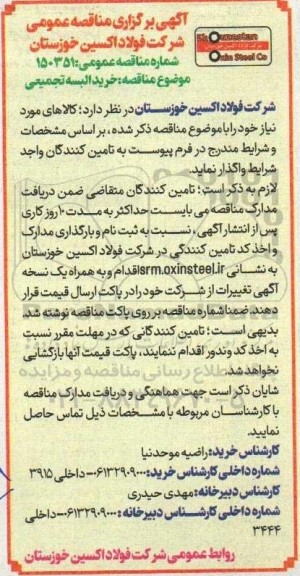 آگهی برگزاری مناقصه عمومی
شرکت فولاد اکسین خوزستان
Khouzestan
Oxin Steel Co
شماره مناقصه عمومی: ۱۵۰۳۵۱
موضوع مناقصه: خرید البسه تجمیعی
شرکت فولاد اکسین خوزستان در نظر دارد؛ کالاهای مورد
نیاز خود را با موضوع مناقصه ذکر شده، بر اساس مشخصات
و شرایط مندرج در فرم پیوست به تامین کنندگان واجد
شرایط واگذار نماید.
لازم به ذکر است؛ تامین کنندگان متقاضی ضمن دریافت
مدارک مناقصه می بایست حداکثر به مدت ۱۰ روز کاری
پس از انتشار آگهی، نسبت به ثبت نام و بارگذاری مدارک
و اخذ کد تامین کنندگی در شرکت فولاد اکسین خوزستان
به نشانی srm.oxinsteel.ir اقدام و به همراه یک نسخه
آگهی تغییرات از شرکت خود را در پاکت ارسال قیمت قرار
دهند. ضمنا شماره مناقصه بر روی پاکت مناقصه نوشته شد
بدیهی است؛ تامین کنندگانی که در مهلت مقرر نسبت
به اخذ کد وندور اقدام ننمایند، پاکت قیمت آنها بازگشایی
نخواهد شد.
شایان ذکر است جهت هماهنگی و دریافت مدارک مناقصه
با کارشناسان مربوطه با مشخصات ذیل تماس حاصل
نمایید.
کارشناس خرید: راضیه موحدنیا
شماره داخلی کارشناس خرید: ۰۶۱۳۲۹۰۹۰۰۰-داخلی ۳۹۱۵
کارشناس دبیرخانه: مهدی حیدری
شماره داخلی کارشناس دبیرخانه: ۰۶۱۳۲۹۰۹۰۰۰-داخلی
۳۴۴۴
روابط عمومی شرکت فولاد اکسین خوزستان